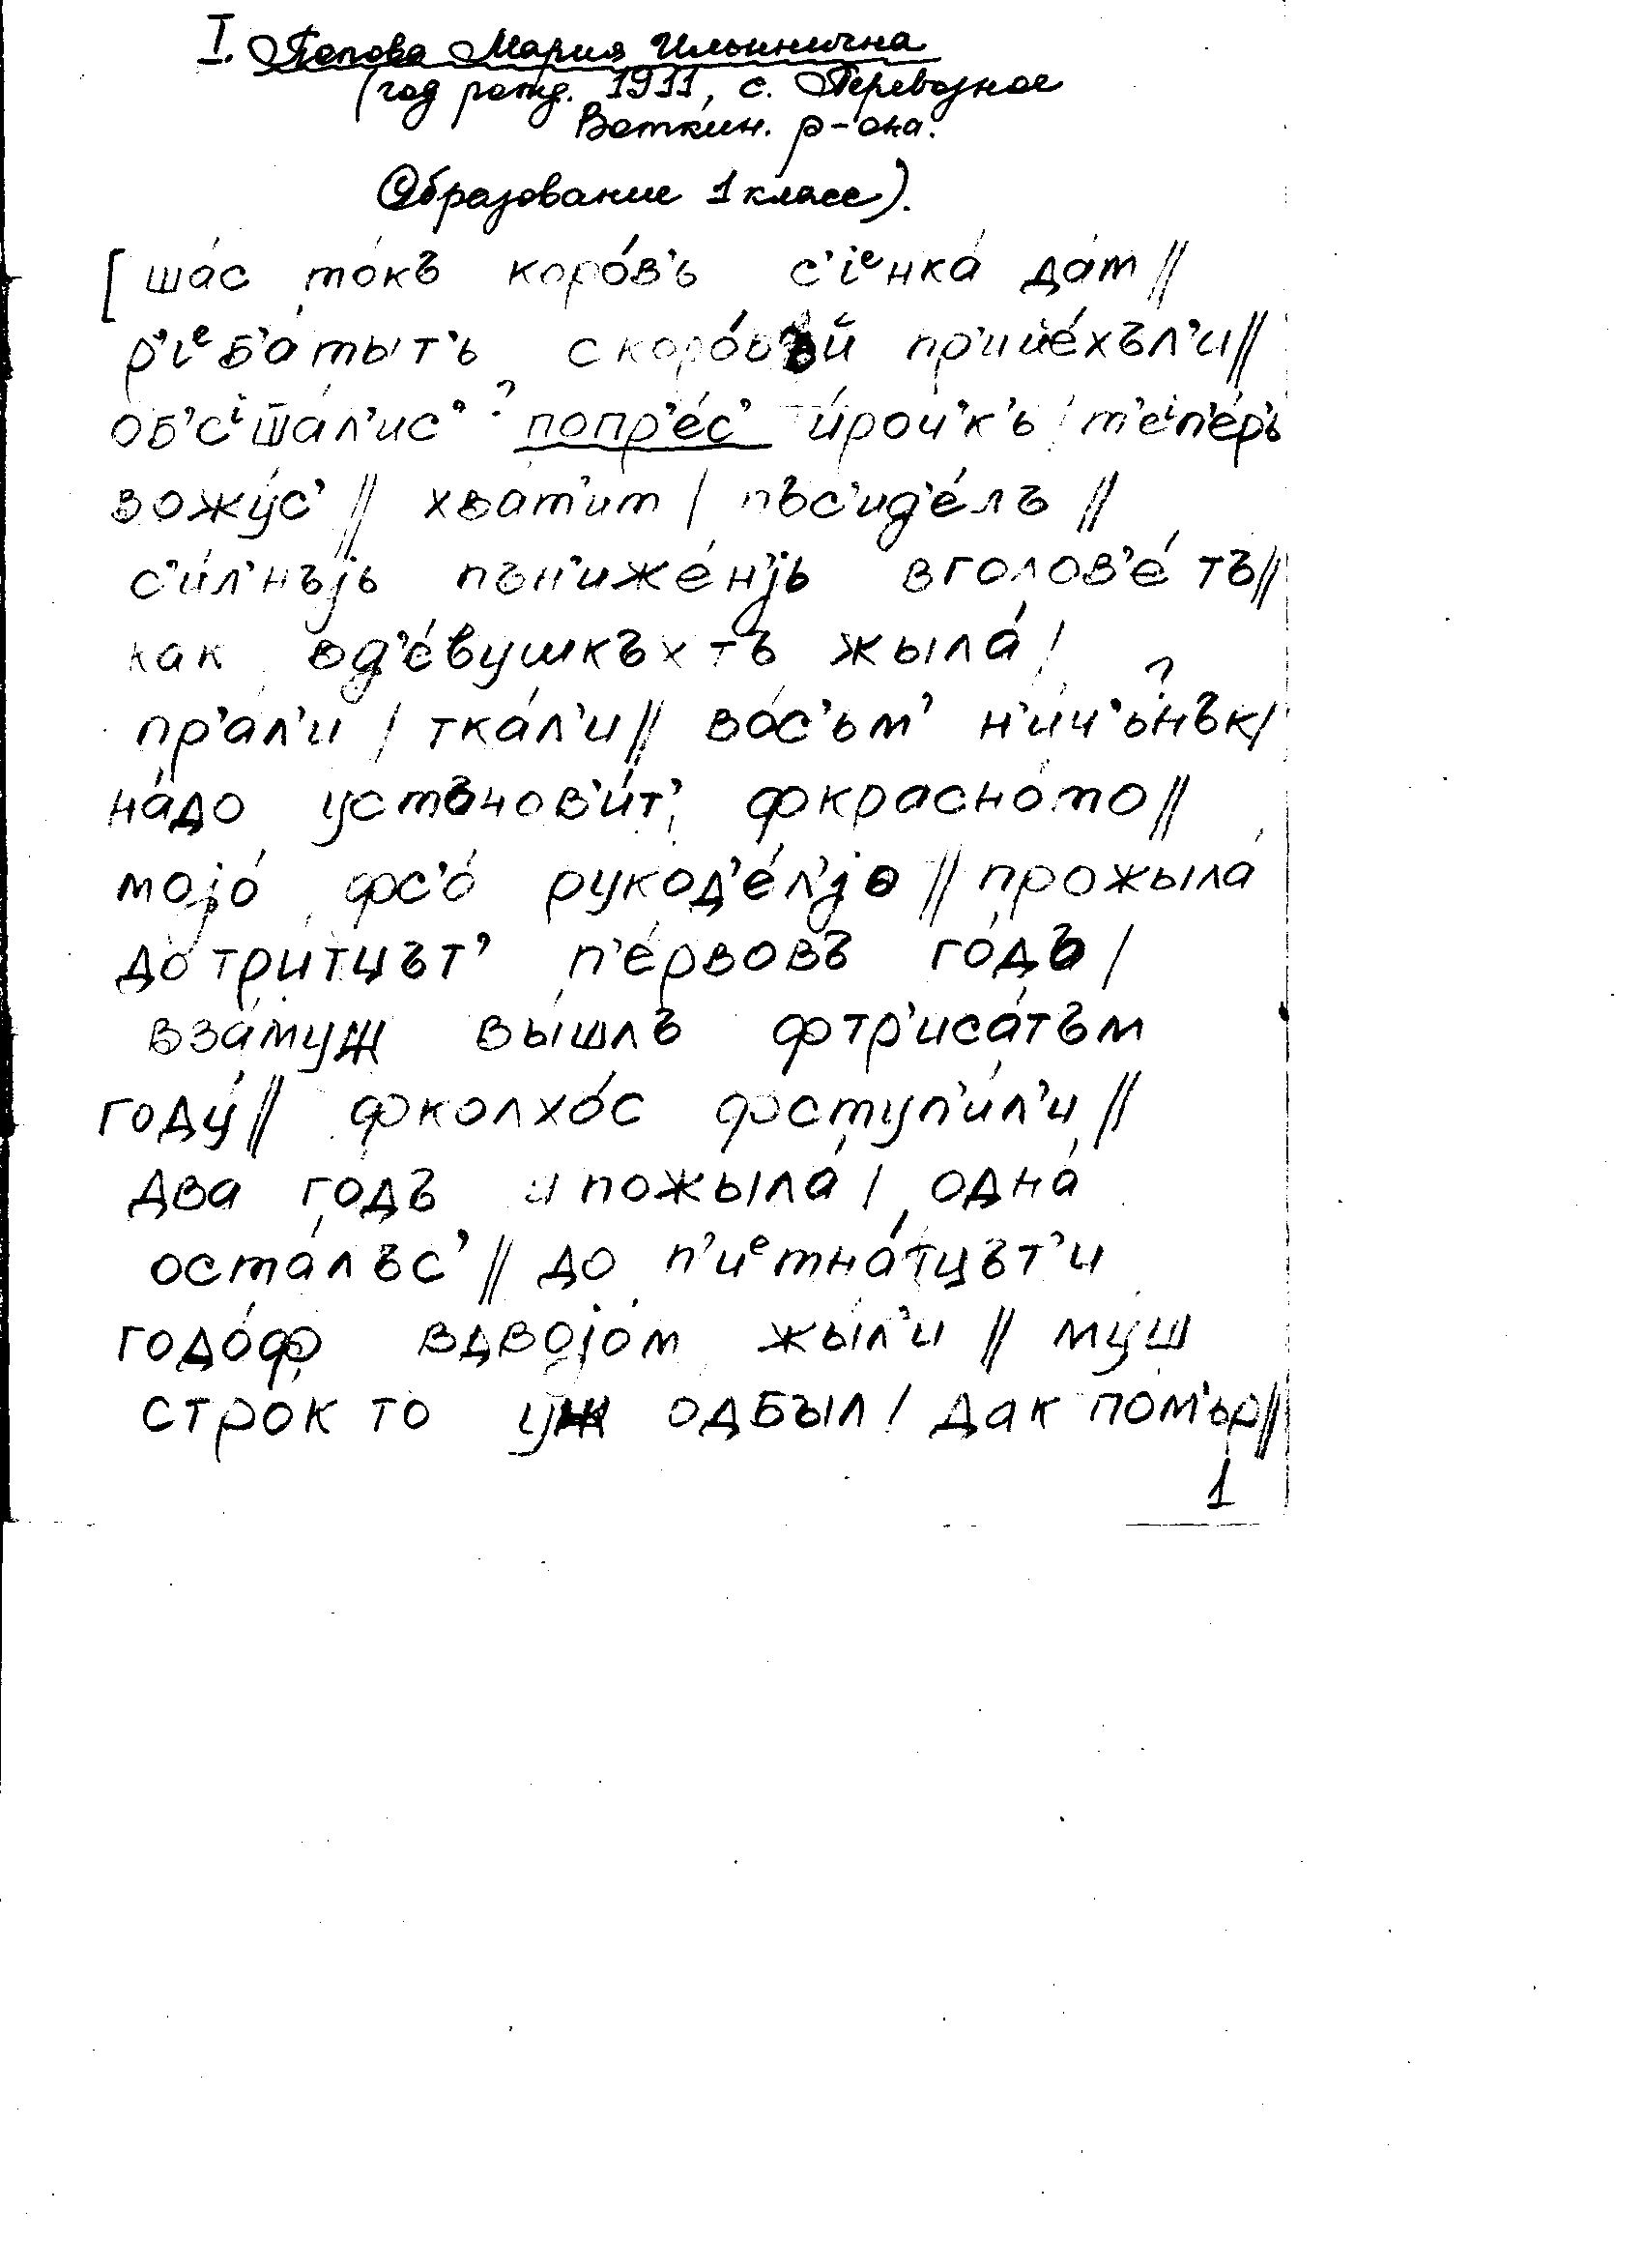 I. Попова Мария Ильинична
(год рожд. 1911, с. Перевозное
Воткин. р-она.
Образование 1 класс).
[ ша́с то́къ коро́в'ь с'іᵉнка́ да́т //
р'іᵉб'а́тыт'ь скоро́въй пр'ийе́хъл'и //
попр'е́с' и́роч'к'ь / т'еⁱп'е́р'ь
вожу́с' // хва́т'ит / пъс'ид'е́лъ //
с'и́л'нъјь пън'иже́н'јь вголов'е́ тъ //
как вд'е́вушкъх тъ жыла́ /
пр'а́л'и / тка́л'и // во́с'ьм' н'и́ч'ьнък /
на́до устънов'и́т' фкрасно́то //
мојо́ фс'о́ рукод'е́л'јо // прожыла́
до три́тцът' п'е́рвовъ го́дъ /
вза́муж вы́шлъ фтр'иса́тъм
году́ // фколхо́с фступ'и́л'и //
два го́дъ и пожыла́ / одна́
оста́лъс' // до п'иᵉтна́тцът'и
годо́ф вдвојо́м жы́л'и // му́ш
стро́к то уж одбы́л / дак по́м'ьр //
1